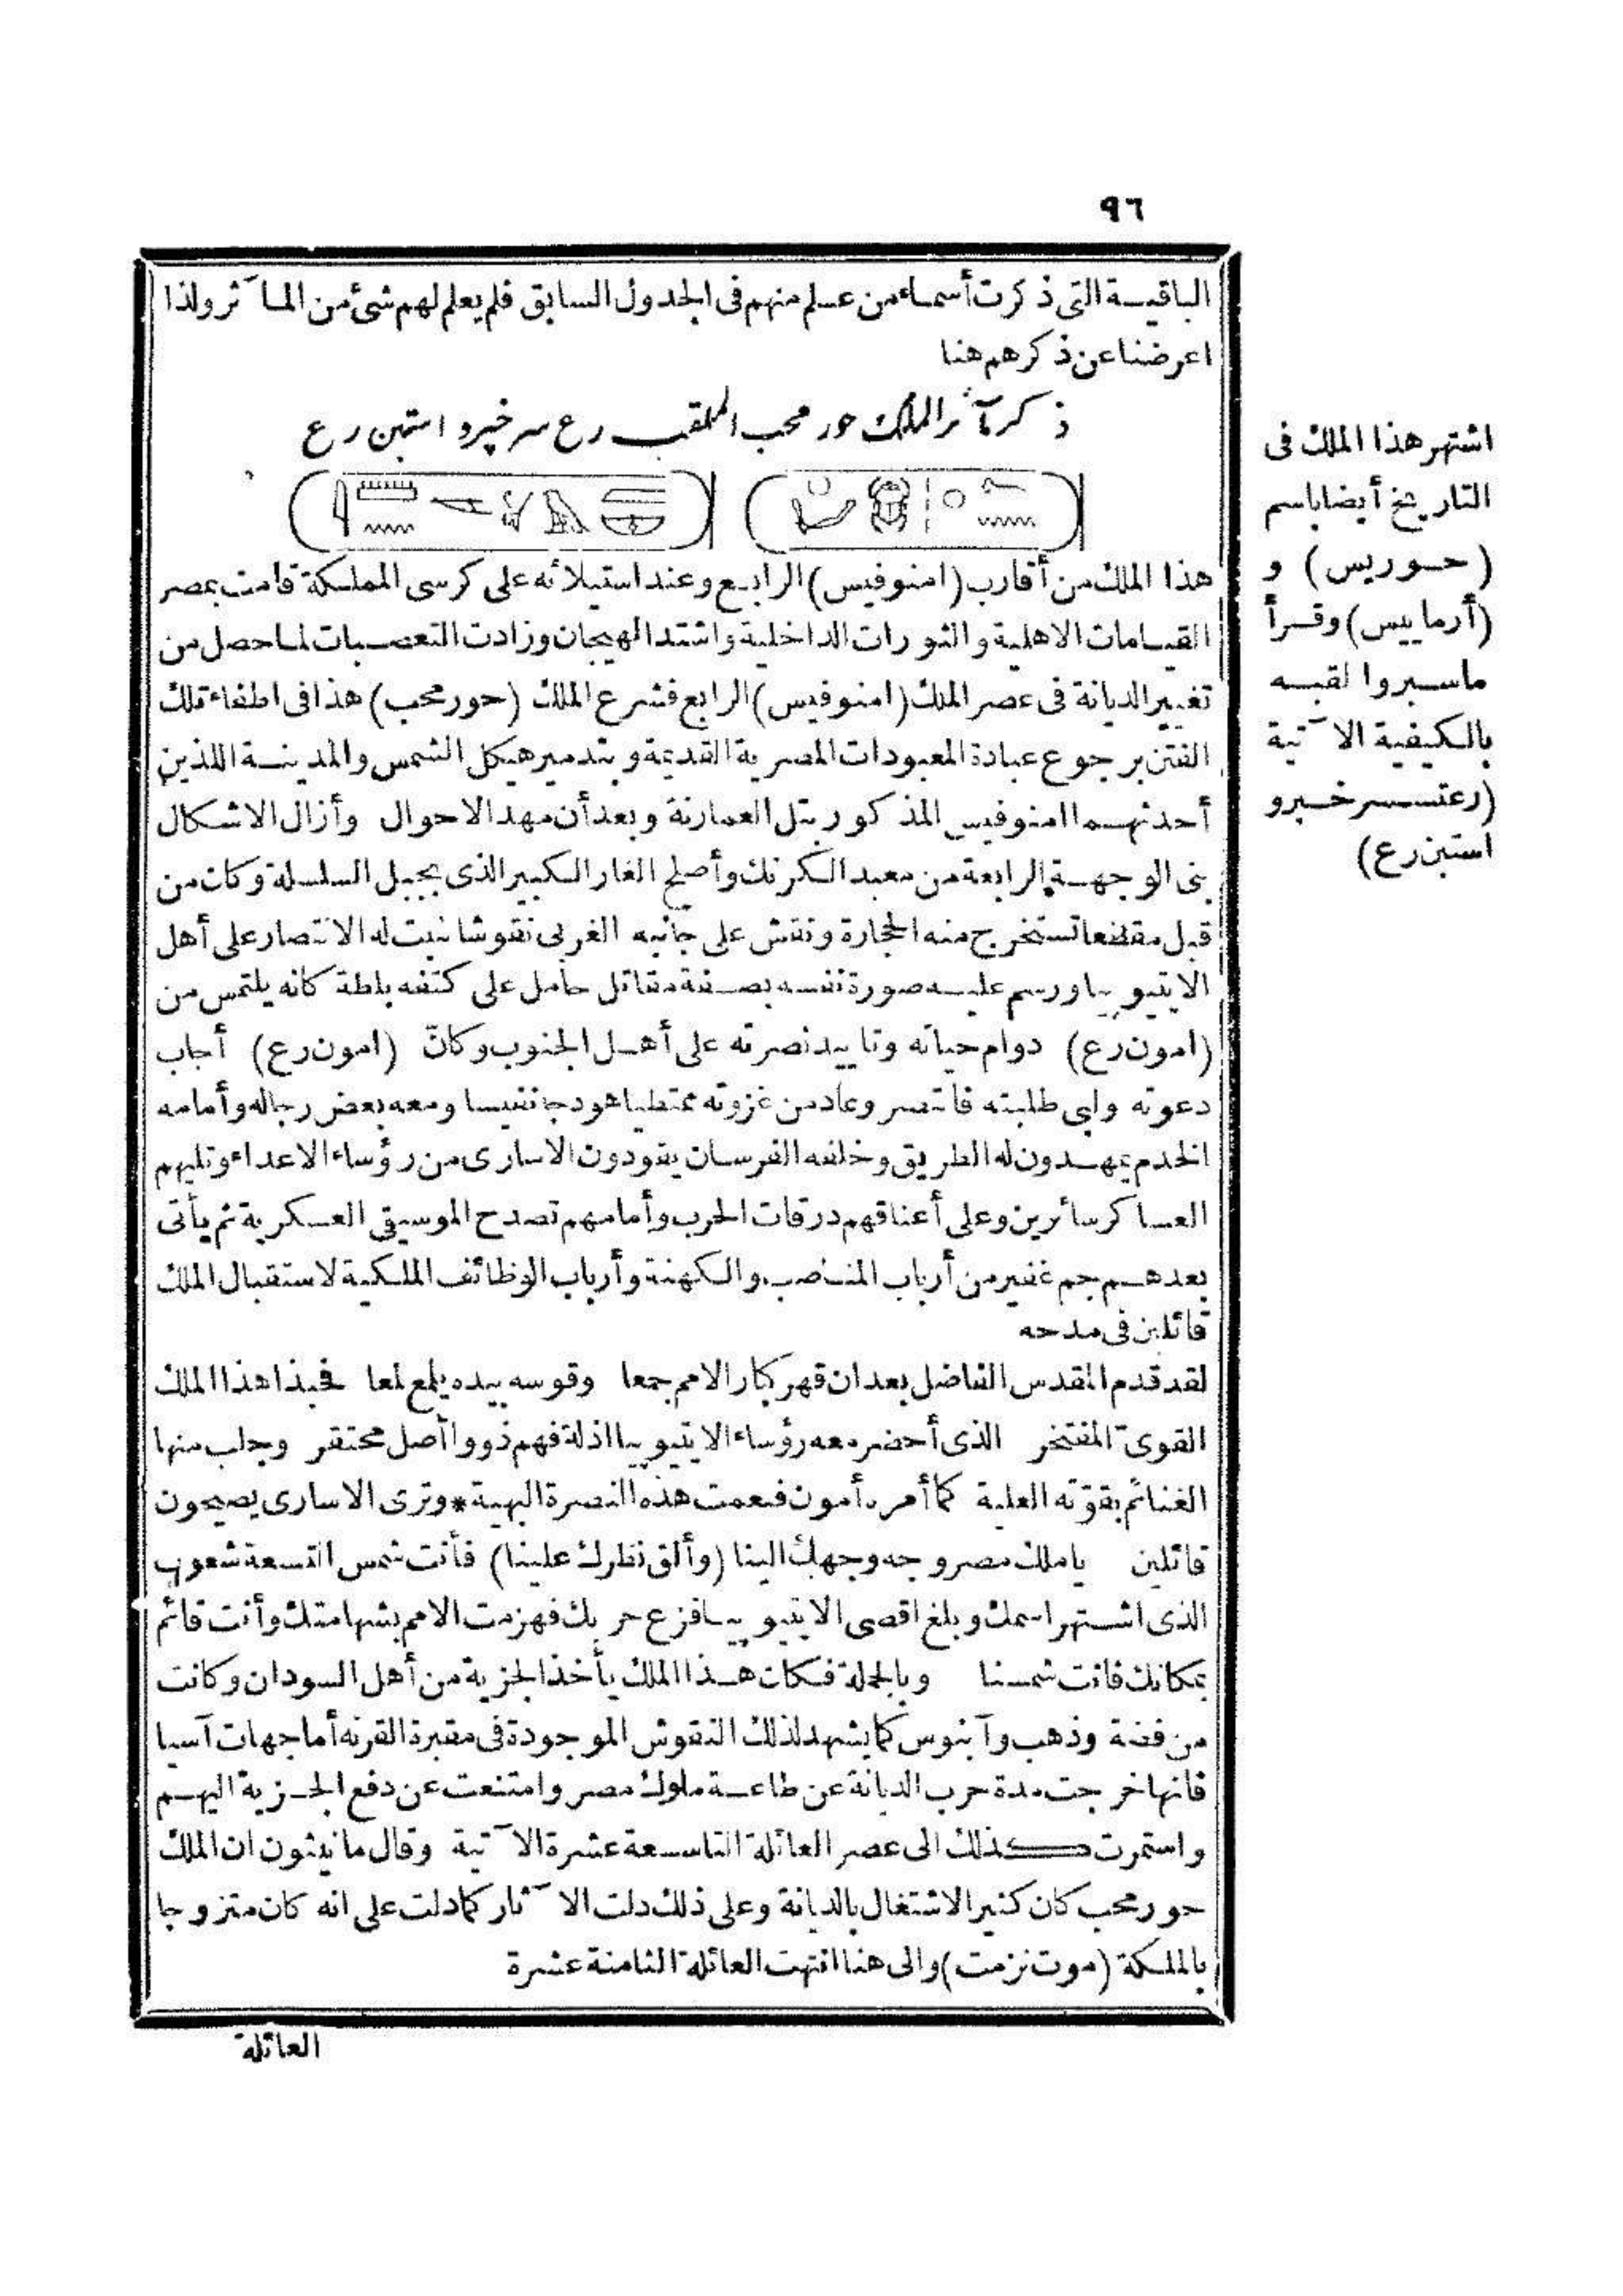 ٩٦
الباقية التى ذكرت أسماء من علم منهم فى الجدول السابق فلم يعلم لهم شئ من المآثر ولذا
اعرضنا عن ذكرهم هنا
ذكر مآثر الملك حور محب الملقب رع سر خپرو استپن رع
هذا الملك من أقارب (امنوفيس) الرابع وعند استيلائه على كرسى المملكة قامت بمصر
القيامات الاهلية والثورات الداخلية واشتد الهيجان وزادت التعصبات لما حصل من
تغيير الديانة فى عصر الملك (امنوفيس) الرابع فشرع الملك (حور محب) هذا فى اطفاء تلك
الفتن برجوع عبادة المعبودات المصرية القديمة وبتدمير هيكل الشمس والمدينة اللذين
أحدثهما امنوفيس المذكور بتل العمارنة وبعد أن مهد الاحوال وأزال الاشكال
بنى الوجهة الرابعة من معبد الكرنك وأصلح الغار الكبير الذى بجبل السلسلة وكان من
قبل مقطعا تستخرج منه الحجارة ونقش على جانبه الغربى نقوشا تثبت له الانتصار على أهل
الايتيوپيا ورسم عليه صورة نفسه بصفة مقاتل حامل على كتفه بلطة كانه يلتمس من
(امون رع) دوام حياته وتاييد نصرته على أهل الجنوب وكانّ (امون رع) أجاب
دعوته ولبى طلبته فانتصر وعاد من غزوته ممتطيا هودجا نفيسا ومعه بعض رجاله وأمامه
الخدم يمهدون له الطريق وخلفه الفرسان يقودون الاسارى من رؤساء الاعداء وتليهم
العساكر سائرين وعلى أعناقهم درقات الحرب وأمامهم تصدح الموسيقى العسكرية ثم يأتى
بعدهم جم غفير من أرباب المناصب والكهنة وأرباب الوظائف الملكية لاستقبال الملك
قائلين فى مدحه
لقد قدم المقدس الفاضل بعد ان قهر كبار الامم جمعا وقوسه بيده يلمع لمعا فحبذا هذا الملك
القوىّ المفتخر الذى أحضر معه رؤساء الايتيوپيا اذلة فهم ذووا أصل محتقر وجلب منها
الغنائم بقوّته العلية كما أمره أمون فنعمت هذه النصرة البهية * وترى الاسارى يصيحون
قائلين ياملك مصر وجه وجهك الينا (وألق نظرك علينا) فأنت شمس التسعة شعوب
الذى اشتهر اسمك وبلغ اقصى الايتيوپيا فزع حربك فهزمت الامم بشهامتك وأنت قائم
بمكانك فانت شمسنا وبالجملة فكان هذا الملك يأخذ الجزية من أهل السودان وكانت
من فضة وذهب وآبنوس كما يشهد لذلك النقوش الموجودة فى مقبرة القرنه أما جهات آسيا
فانها خرجت مدة حرب الديانة عن طاعة ملوك مصر وامتنعت عن دفع الجزية اليهم
واستمرت كذلك الى عصر العائلة التاسعة عشرة الآتية وقال مانيثون ان الملك
حور محب كان كثير الاشتغال بالديانة وعلى ذلك دلت الآثار كما دلت على انه كان متزوجا
بالملكة (موت نزمت) والى هنا انتهت العائلة الثامنة عشرة
العائلة
اشتهر هذا الملك فى
التاريخ أيضا باسم
(حوريس) و
(أرماييس) وقرأ
ماسبروا لقبه
بالكيفية الآتية
(رعتسسرخپرو
استپن رع)